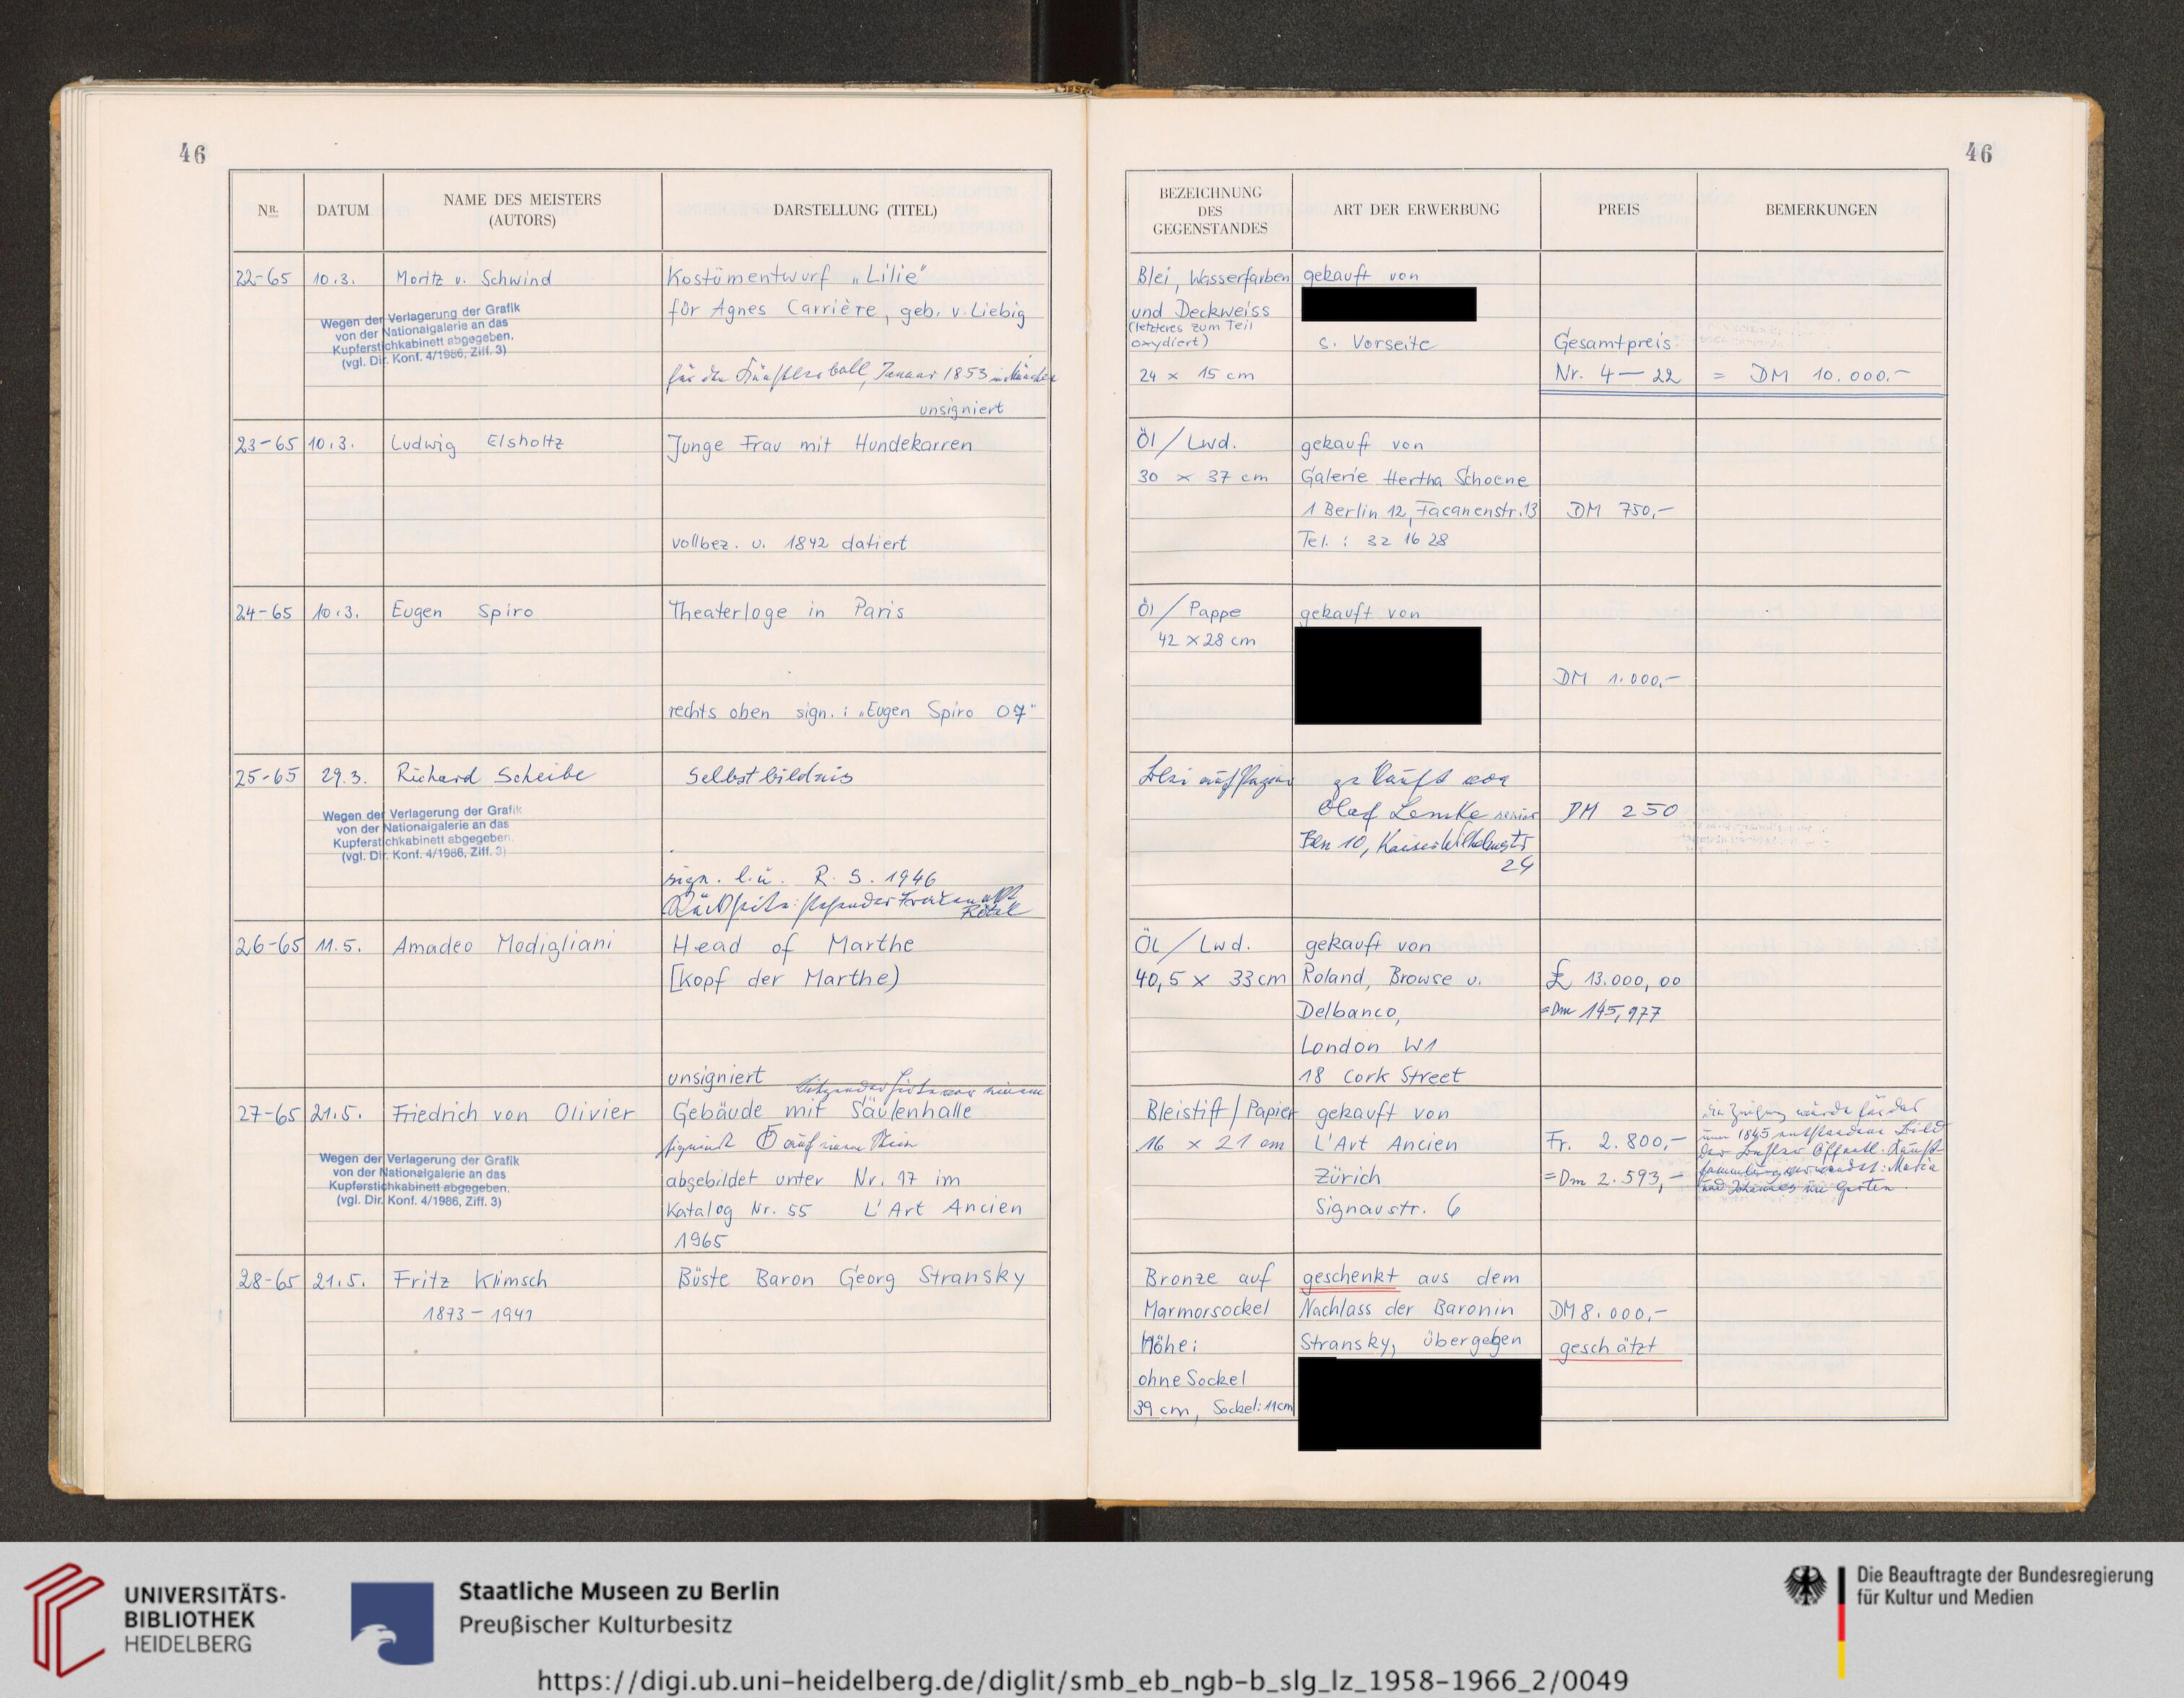 46
46
NR.
DATUM
NAME DES MEISTERS
(AUTORS)
DARSTELLUNG (TITEL)
BEZEICHNUNG
DES
GEGENSTANDES
ART DER ERWERBUNG
PREIS
BEMERKUNGEN
22-65
10.3.
Moritz v. Schwind
Wegen der Verlagerung der Grafik
von der Nationalgalerie an das
Kupferstichkabinett abgegeben.
(vgl. Dir. Konf. 4/1986, Ziff. 3)
Kostümentwurf „Lilie"
für Agnes Carrière, geb. v. Liebig
für den Künstlerball, Januar 1853 in München
unsigniert
Blei, Wasserfarben
und Deckweiss
(letzteres zum Teil
oxydiert)
24 x 15 cm
gekauft von
s. Vorseite
Gesamtpreis
Nr. 4 — 22 = DM 10.000.-
23-65
10.3.
Ludwig Elsholtz
Junge Frau mit Hundekarren
vollbez. u. 1842 datiert
Öl / Lwd.
30 x 37 cm
gekauft von
Galerie Hertha Schoene
1 Berlin 12, Facanenstr. 13
Tel.: 32 16 28
DM 750,-
24-65
10.3.
Eugen Spiro
Theaterloge in Paris
rechts oben sign.: „Eugen Spiro 07"
Öl / Pappe
42 x 28 cm
gekauft von
DM 1.000,-
25-65
29.3.
Richard Scheibe
Wegen der Verlagerung der Grafik
von der Nationalgalerie an das
Kupferstichkabinett abgegeben.
(vgl. Dir. Konf. 4/1986, Ziff. 3)
Selbstbildnis
sign. l. u. R. S. 1946
Rückseite: stehender Frauenakt
Rötel
Blei auf Papier
gekauft von
Olaf Lemke senior
Bln 10, Kaiser Wilhelmstr
24
DM 250
26-65
11.5.
Amadeo Modigliani
Head of Marthe
[Kopf der Marthe)
unsigniert
Öl / Lwd.
40,5 x 33 cm
gekauft von
Roland, Browse u.
Delbanco,
London W1
18 Cork Street
£ 13.000,00
= Dm 145,977
27-65
21.5.
Friedrich von Olivier
Wegen der Verlagerung der Grafik
von der Nationalgalerie an das
Kupferstichkabinett abgegeben.
(vgl. Dir. Konf. 4/1986, Ziff. 3)
Sitzender Hirte vor einem
Gebäude mit Säulenhalle
signiert FO auf einem Stein
abgebildet unter Nr. 17 im
Katalog Nr. 55 L'Art Ancien
1965
Bleistift / Papier
16 x 21 cm
gekauft von
L'Art Ancien
Zürich
Signaustr. 6
Fr. 2.800,-
= Dm 2.593,-
wurde für das
um 1845 entstandene Bild
der Basler Öffentl. Kunst-
sammlung verwendet: Maria
und Johannes im Garten.
28-65
21.5.
Fritz Klimsch
1873 - 1941
Büste Baron Georg Stransky
Bronze auf
Marmorsockel
Höhe:
ohne Sockel
39 cm, Sockel: 11 cm
geschenkt aus dem
Nachlass der Baronin
Stransky, übergeben
DM 8.000,-
geschätzt
UNIVERSITÄTS-
BIBLIOTHEK
HEIDELBERG
Staatliche Museen zu Berlin
Preußischer Kulturbesitz
Die Beauftragte der Bundesregierung
für Kultur und Medien
https://digi.ub.uni-heidelberg.de/diglit/smb_eb_ngb-b_slg_lz_1958-1966_2/0049